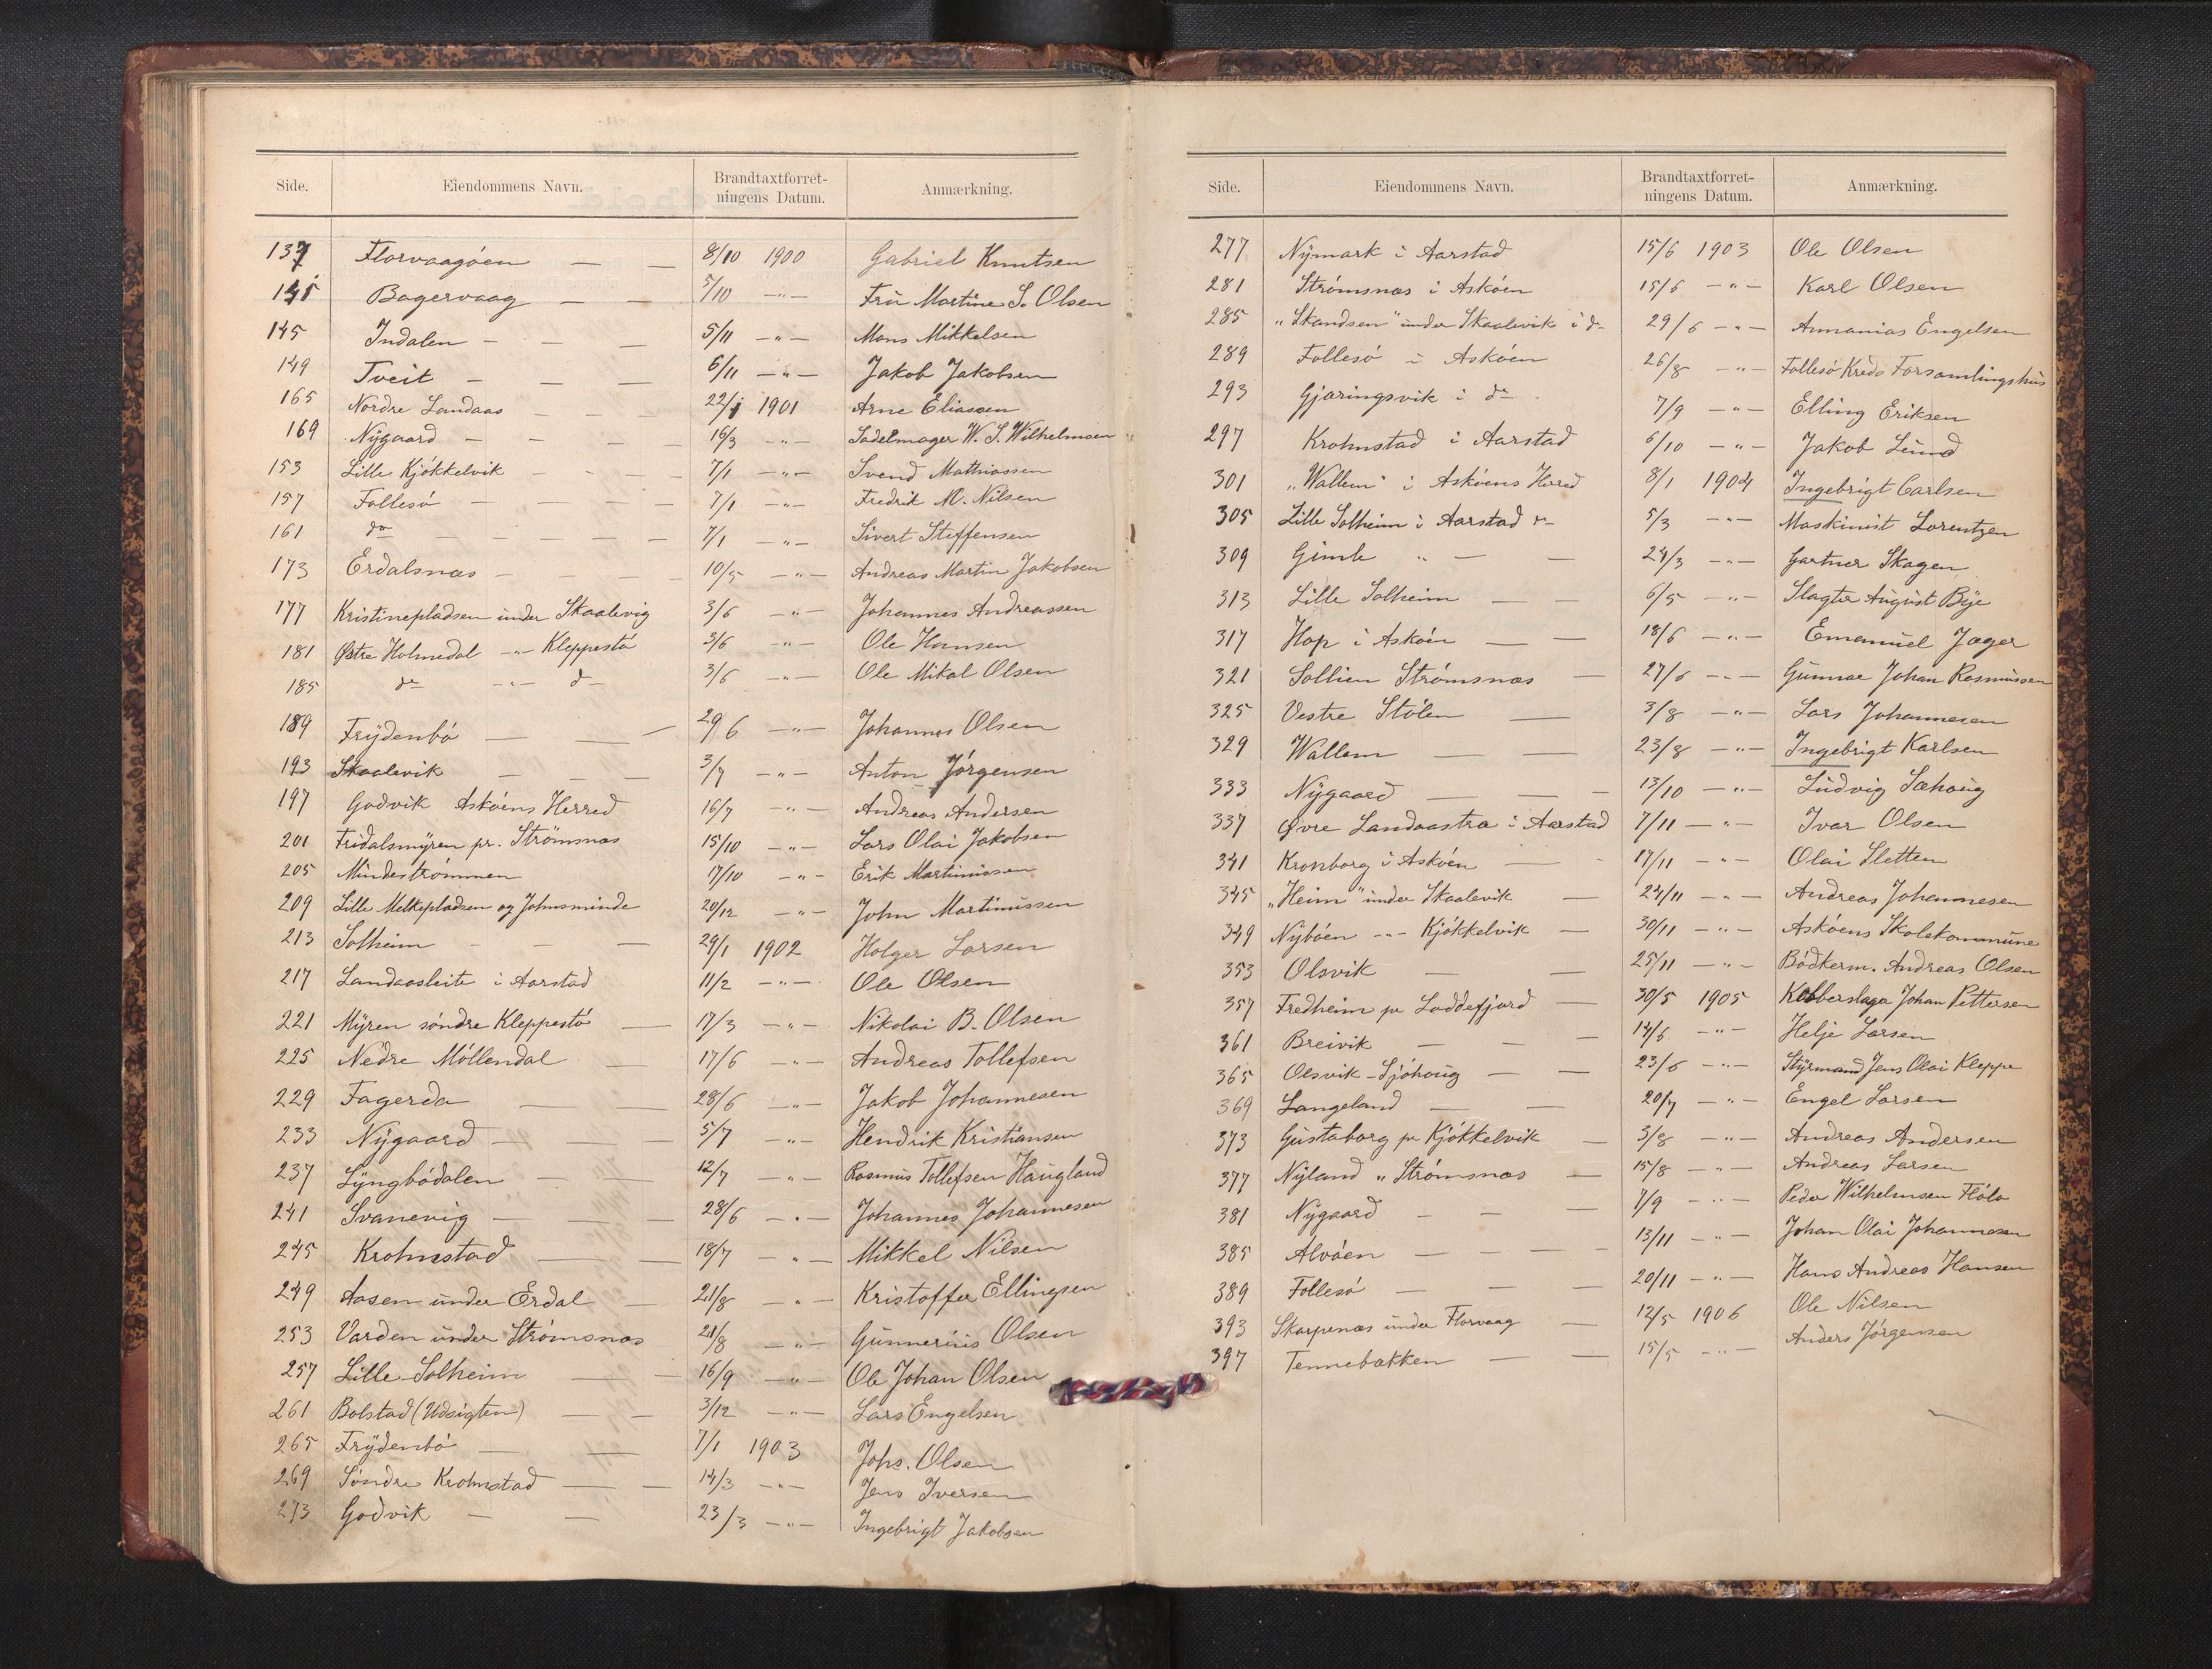 Side. Eiendommens Navn. Brandtaxtforret- ningens Datum. Anmærkning.
137 Florvaagöen — — 8/10 1900 Gabriel Knutsen
141 Bagervaag — — 5/10 —"— Fru Martine S. Olsen
145 Indalen — — — 5/11 —"— Mons Mikkelsen
149 Tveit — — — 6/11 —"— Jakob Jakobsen
165 Nordre Landaas — — — 22/1 1901 Arne Eliassen
169 Nygaard — — — — 16/3 —"— Sadelmager W. S. Wilhelmsen
153 Lille Kjökkelvik — — — 7/1 —"— Svend Mathiassen
157 Follesö — — — 7/1 —"— Fredrik M. Nilsen
161 do — — — — — 7/1 —"— Sivert Steffensen
173 Erdalsnæs — — — — 10/5 —"— Andreas Martin Jakobsen
177 Kristinepladsen under Skaalevig 3/6 —"— Johannes Andreassen
181 Østre Holmedal —"— Kleppestö 3/6 —"— Ole Hansen
185 do —"— do 3/6 —"— Ole Mikal Olsen
189 Frydenbö — — — 29/6 —"— Johannes Olsen
193 Skaalevik — — — 3/7 —"— Anton Jörgensen
197 Godvik Asköens Herred 16/7 —"— Andreas Andersen
201 Fridalsmyren pr. Strömsnæs 15/10 —"— Lars Olai Jakobsen
205 Mindeströmmen 17/10 —"— Erik Martiniusen
209 Lille Melkepladsen og Johnsminde 20/12 —"— John Martinussen
213 Solheim — — — 29/1 1902 Holger Larsen
217 Landaasleite i Aarstad 11/2 —"— Ole Olsen
221 Myren söndre Kleppestö — 17/3 —"— Nikolai B. Olsen
225 Nedre Möllendal — 17/6 —"— Andreas Tollefsen
229 Fagerda — — 28/6 —"— Jakob Johannesen
233 Nygaard — — — 5/7 —"— Hendrik Kristiansen
237 Lyngbödalen — — 12/7 —"— Rasmus Tollefsen Haugland
241 Svanevig — — — 28/6 —"— Johannes Johannesen
245 Krohnstad — — 18/7 —"— Mikkel Nilsen
249 Aasen under Erdal — 21/8 —"— Kristoffer Ellingsen
253 Varden under Strömsnæs 21/8 —"— Gunnerius Olsen
257 Lille Solheim — — 16/9 —"— Ole Johan Olsen
261 Bolstad (Udsigten) — — 3/12 —"— Lars Engelsen
265 Frydenbö — — 7/1 1903 Johs. Olsen
269 Söndre Krohnstad — — 14/3 —"— Jens Iversen
273 Godvik — — 23/3 —"— Ingebrigt Jakobsen
Side. Eiendommens Navn. Brandtaxtforret- ningens Datum. Anmærkning.
277 Nymark i Aarstad 15/6 1903 Ole Olsen
281 Strömsnæs i Asköen 15/6 —"— Karl Olsen
285 „Skandsen" under Skaalevik i do 29/6 —"— Annanias Engelsen
289 Follesö i Asköen 26/8 —"— Follesö Kreds Forsamlingshus
293 Gjæringsvik i do 7/9 —"— Elling Eriksen
297 Krohnstad i Aarstad 6/10 —"— Jakob Lund
301 „Wallem" i Asköens Herred 8/1 1904 Ingebrigt Carlsen
305 Lille Solheim i Aarstad 5/3 —"— Maskinist Lorentzen
309 Gimle " — — 24/3 —"— Gartner Skagen
313 Lille Solheim — — 6/5 —"— Slagter August Bye
317 Hop i Asköen — — 18/6 —"— Emanuel Jæger
321 Sollien Strömsnæs — 27/6 —"— Gunnar Johan Rasmussen
325 Vestre Stölen — 3/8 —"— Lars Johannesen
329 Wallem — — 23/8 —"— Ingebrigt Karlsen
333 Nygaard — — — 13/10 —"— Ludvig Sæhoug
337 Øvre Landaastræ i Aarstad 7/11 —"— Ivar Olsen
341 Kronborg i Asköen — - 17/11 —"— Olai Sletten
345 „Heim" under Skaalevik — 24/11 —"— Andreas Johannesen
349 Nyböen —"— Kjökkelvik — 30/11 —"— Asköens Skolekommune
353 Olsvik — — 25/11 —"— Bödkerm. Andreas Olsen
357 Fredheim pr Loddefjord — 30/5 1905 Kobberslager Johan Pettersen
361 Breivik — — — 14/6 —"— Helje Larsen
365 Olsvik-Sjöhoug — — 23/6 —"— Styrmand Jens Olai Kleppe
369 Langeland — — 20/7 —"— Engel Larsen
373 Gustaborg pr Kjökkelvik — 3/8 —"— Andreas Andersen
377 Nyland " Strömsnæs — 15/8 —"— Andreas Larsen
381 Nygaard — — — 7/9 —"— Peder Wilhelmsen Flölo
385 Alvöen — — — — 13/11 —"— Johan Olai Johannesen
389 Follesö — — — 20/11 —"— Hans Andreas Hansen
393 Skarpenæs under Florvaag — 12/5 1906 Ole Nilsen
397 Tennebækken — — 15/5 —"— Anders Jörgensen